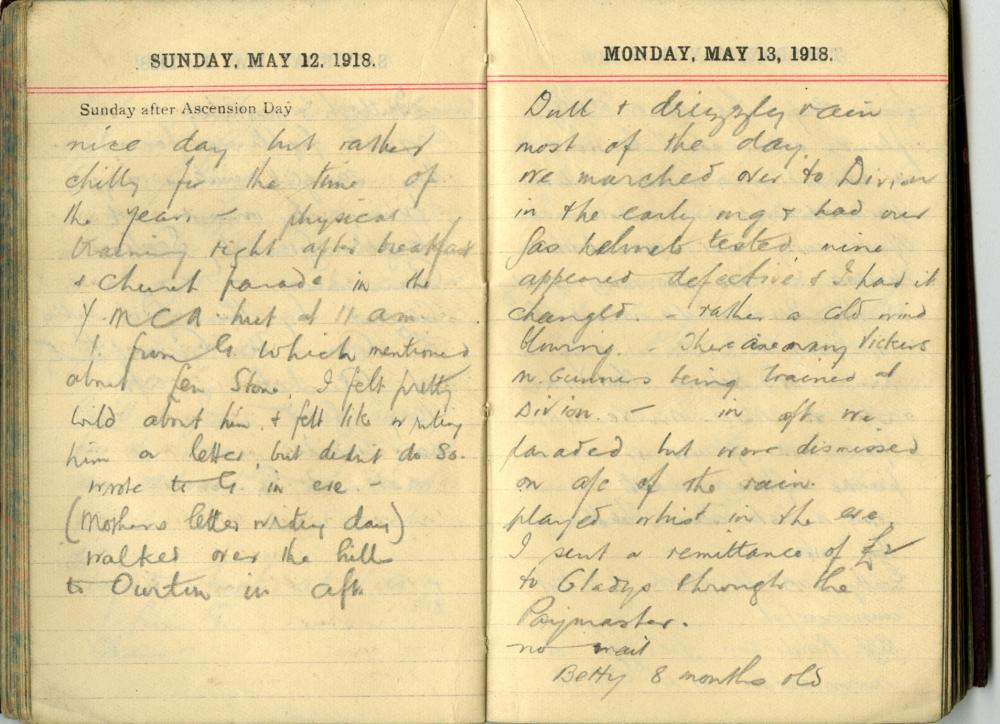 SUNDAY, MAY 12, 1918.
Sunday after Ascension Day
nice day but rather
chilly for the time of
the year – physical
training right after breakfast
& church parade in the
Y.M.C.A. hut at 11 am.
from G. which mentioned
about Len Stone. I felt pretty
wild about him & felt like writing
him a letter, but didn't do so.
wrote to G. in eve. –
(Mothers letter writing day)
walked over the hills
to Ourton in aft.
MONDAY, MAY 13, 1918.
Dull & drizzly rain
most of the day
we marched over to Division
in the early mg & had our
gas helmets tested. mine
appeared defective & I had it
changed. – rather a cold wind
blowing. – There are many Vickers
M. Gunners being trained at
Division. – in aft we
paraded but were dismissed
on a/c of the rain.
played whist in the eve.
I sent a remittance of £2
to Gladys through the
Paymaster.
no mail
Betty 8 months old